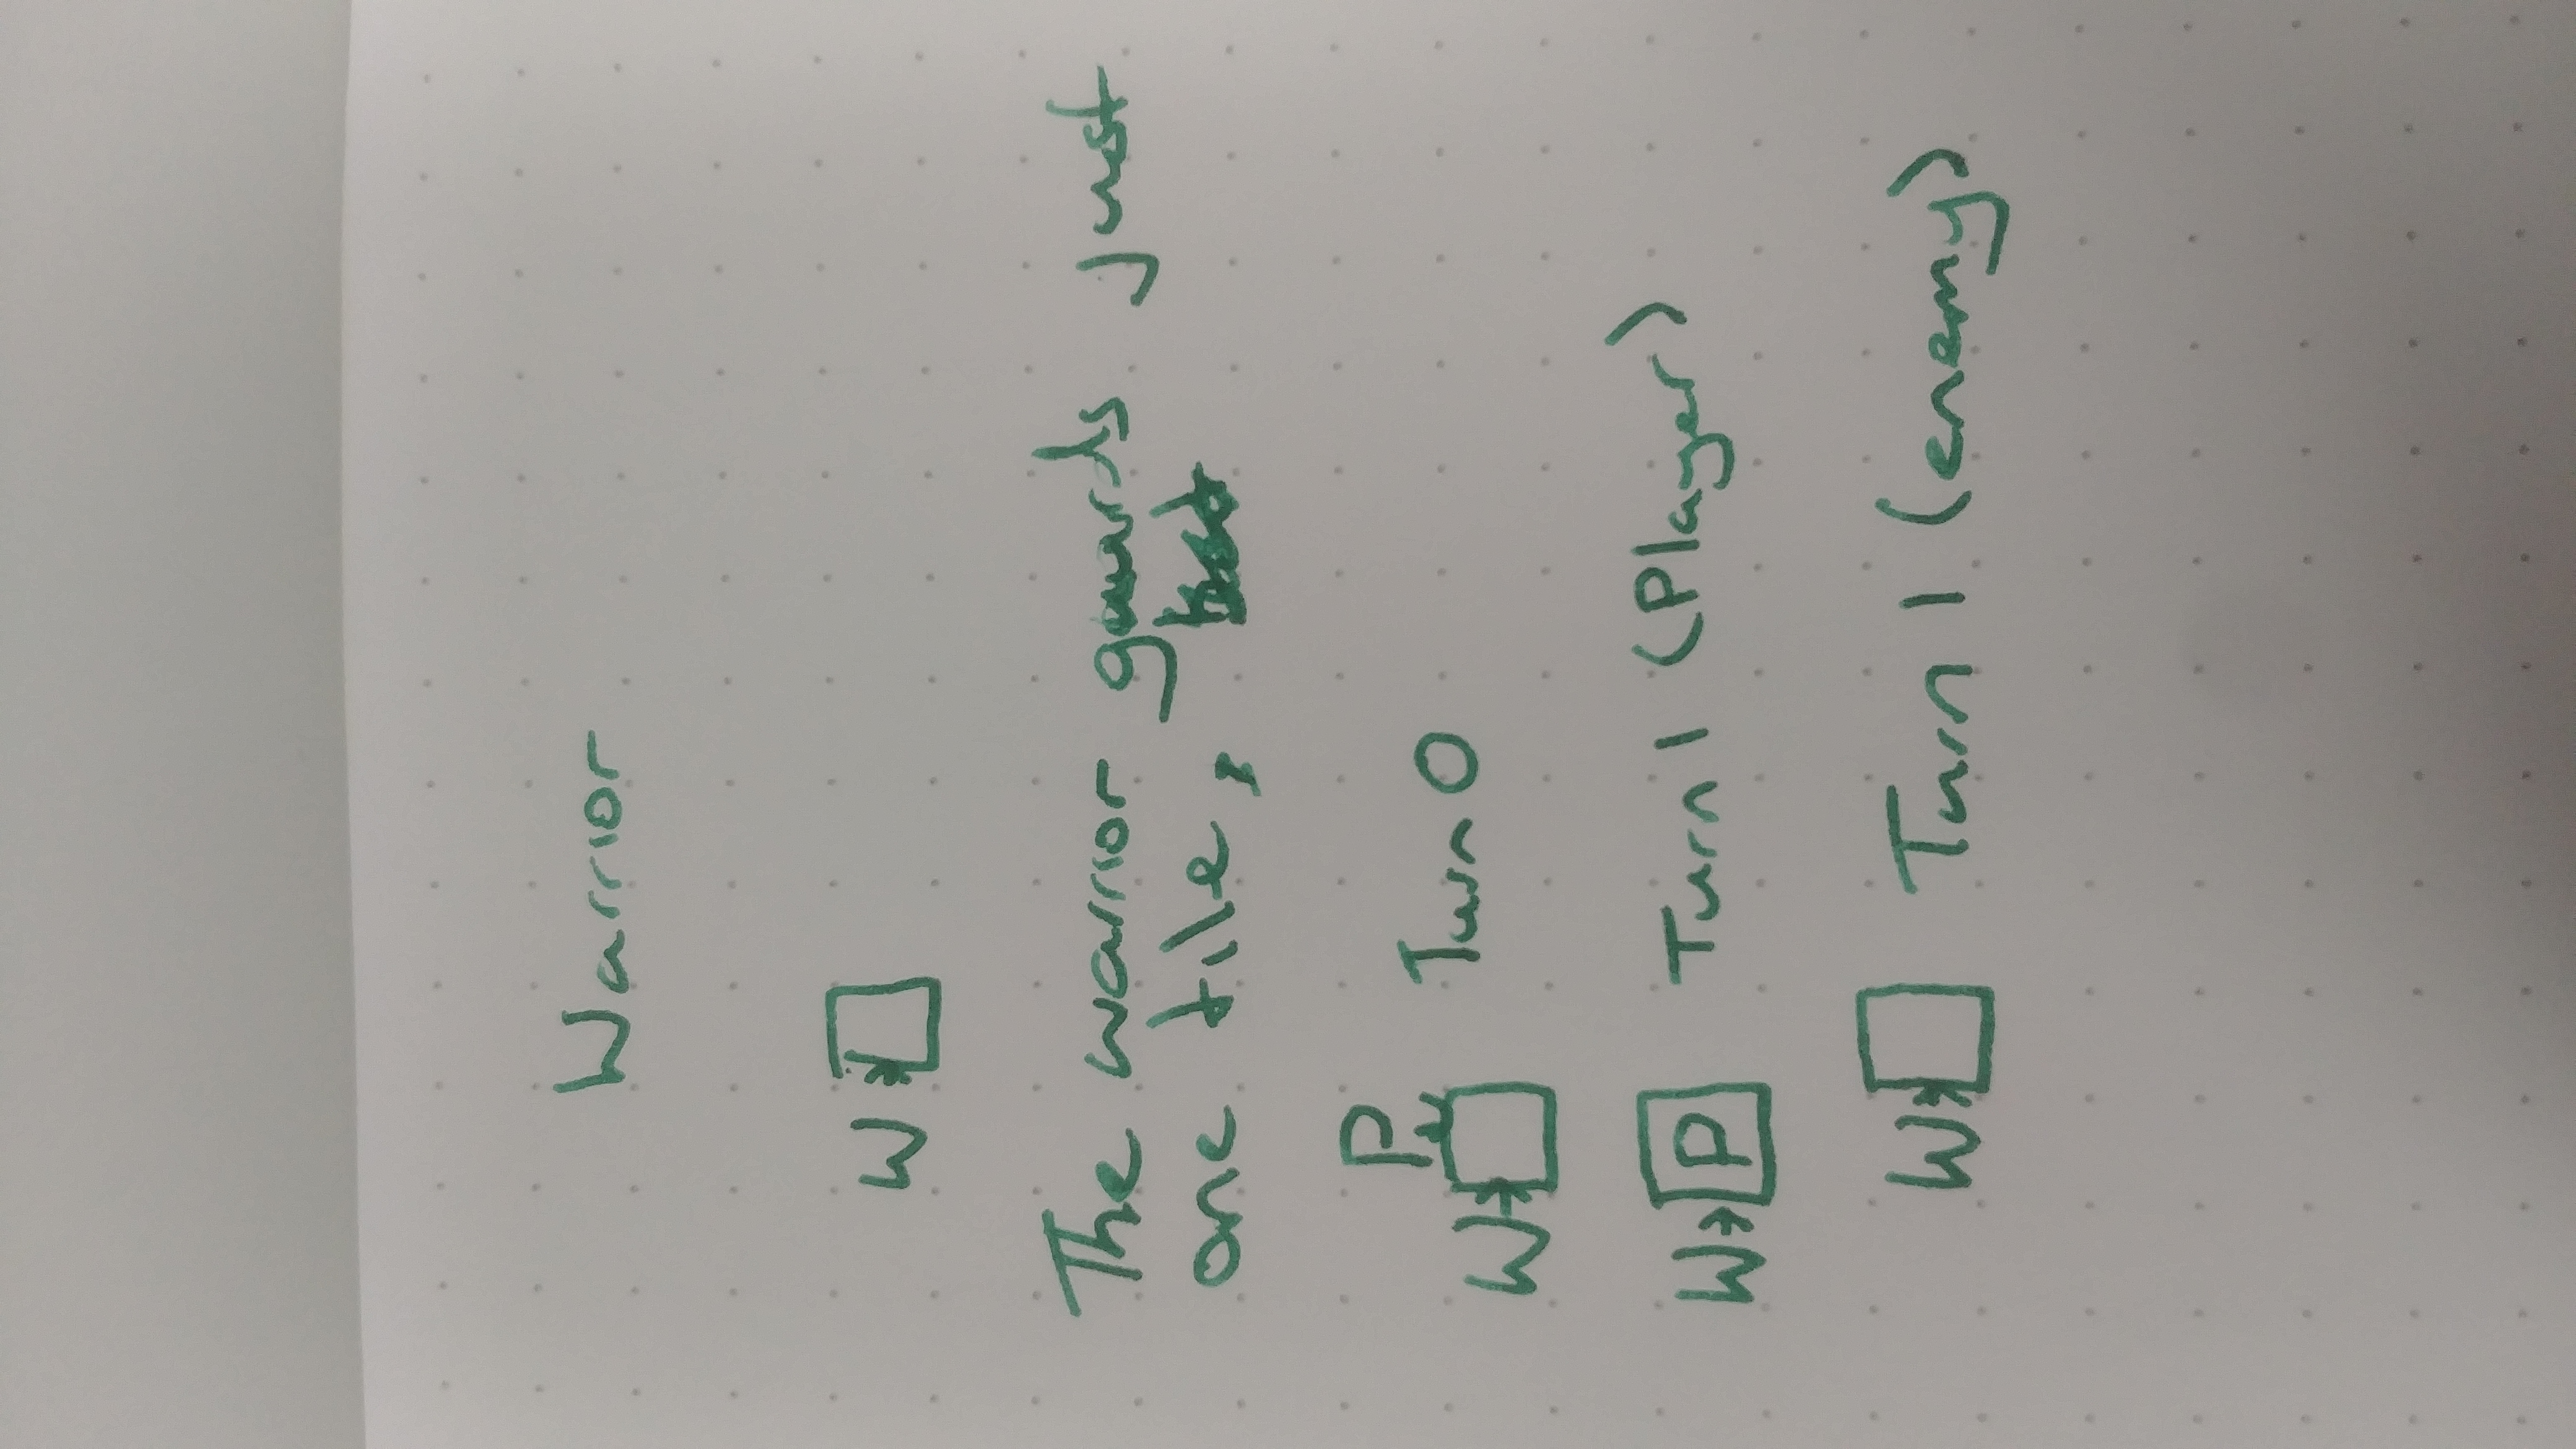 Warrior
W
The warrior guards just
one tile,
P
W Turn 0
W P Turn 1 (Player)
W Turn 1 (enemy)